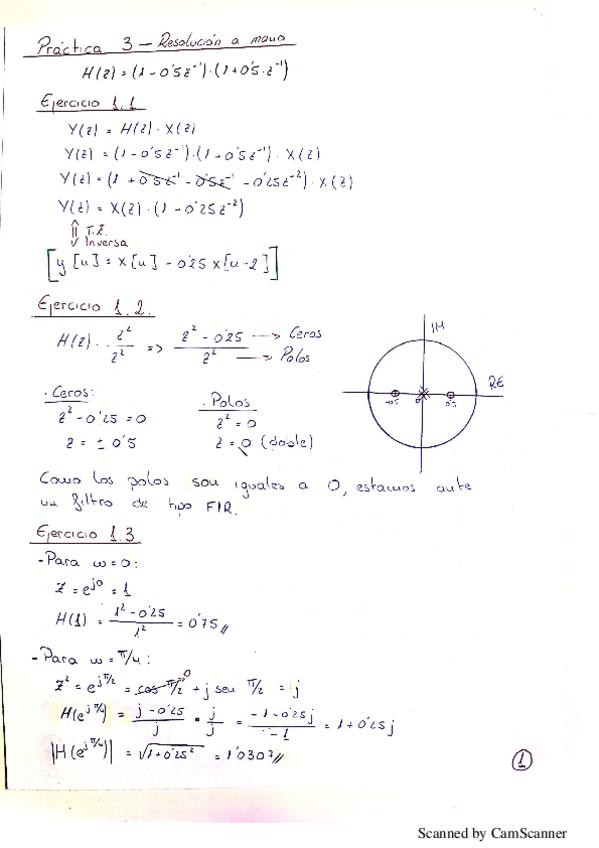 Práctica 3 – Resolución a mano
H(z) = (1 - 0'5z⁻¹)·(1 + 0'5·z⁻¹)
Ejercicio 1.1
Y(z) = H(z) · X(z)
Y(z) = (1 - 0'5z⁻¹)·(1 + 0'5z⁻¹) · X(z)
Y(z) = (1 + 0'5z⁻¹ - 0'5z⁻¹ - 0'25z⁻²) · X(z)
Y(z) = X(z) · (1 - 0'25z⁻²)
T.Z.
Inversa
[y[n] = x[n] - 0'25 x[n-2]]
Ejercicio 1.2.
H(z) · z²/z² => (z² - 0'25)/z² --> Ceros --> Polos
IM
RE
-0'5 0 0'5
· Ceros:
z² - 0'25 = 0
z = ± 0'5
· Polos
z² = 0
z = 0 (doble)
Como los polos son iguales a 0, estamos ante
un filtro de tipo FIR.
Ejercicio 1.3
- Para ω = 0:
z = e^{j0} = 1
H(1) = (1² - 0'25)/1² = 0'75 //
- Para ω = π/4:
z² = e^{jπ/2} = cos π/2 ⁰ + j sen π/2 = j
H(e^{jπ/4}) = (j - 0'25)/j · j/j = (-1 - 0'25j)/-1 = 1 + 0'25j
|H(e^{jπ/4})| = √(1 + 0'25²) = 1'0307 //
1
Scanned by CamScanner